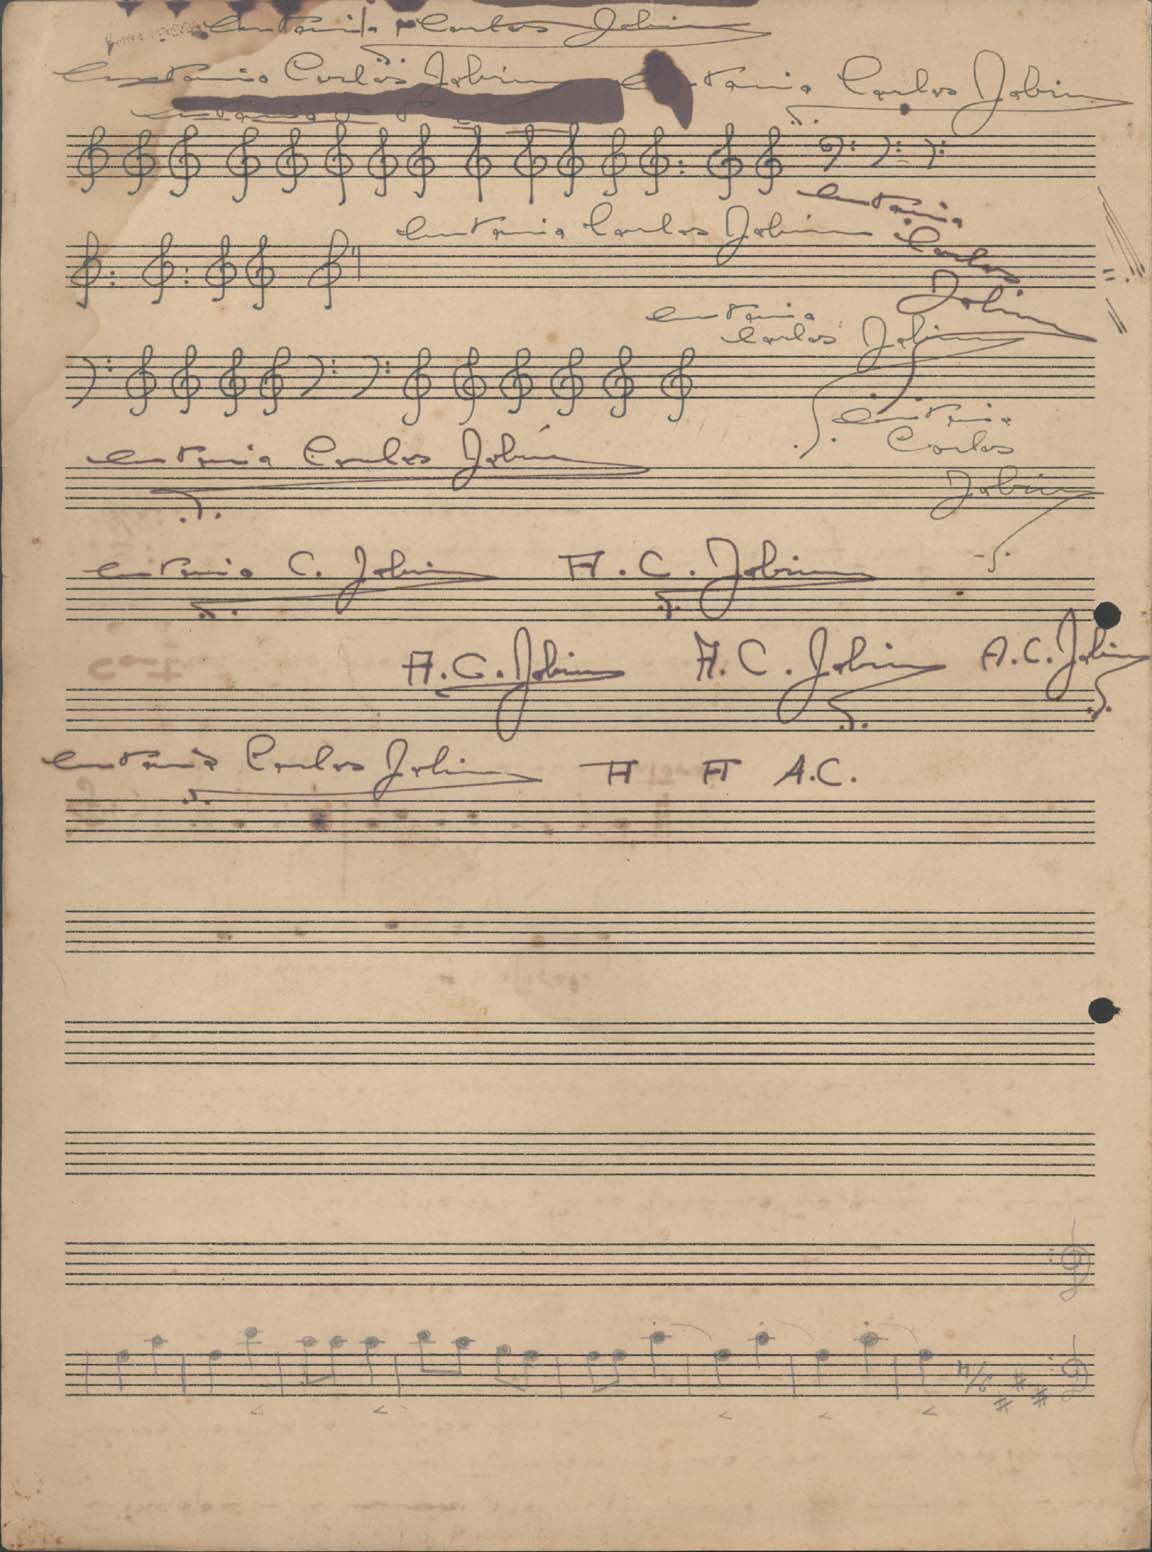 Antonio Carlos Jobim
Antonio Carlos Jobim Antonio Carlos Jobim
Antonio
Antonio Carlos Jobim
Antonio
Carlos
Jobim
Antonio
Carlos Jobim
Antonio
Carlos
Jobim
Antonio Carlos Jobim
Antonio C. Jobim A. C. Jobim
A. C. Jobim A. C. Jobim A. C. Jobim
Antonio Carlos Jobim A A A.C.